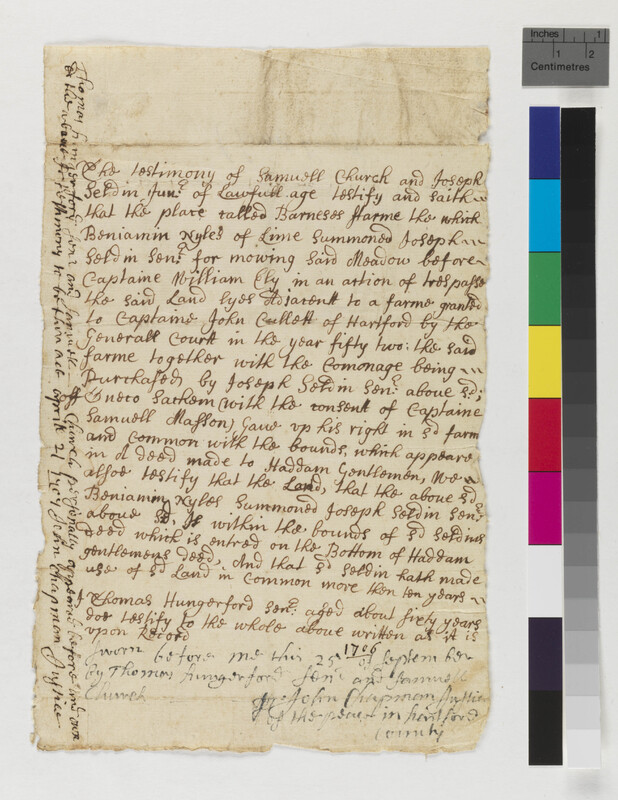 The testimony of Samuell Church and Joseph
Seldin Junr of Lawfull age testify and saith
that the place called Barneses ffarme the which
Beniamin Nyles of Lime Summoned Joseph
Seldin Senr for mowing said Meadow before
Captaine William Ely in an action of trespasse
the said Land lyes Adjacent to a farme granted
to Captaine John Cullett of Hartford by the
Generall Court in the year fifty two: the said
farme together with the Comonage being
Purchased by Joseph Seldin Senr above sd;
off Oneco Sachem (with the consent of Captaine
Samuell Masson) Gave up his right in sd farm
and Common with the bounds, which appeare
in a deed made to Haddam Gentlemen, We
alsoe testify that the Land, that the above sd
Beniamin Nyles Summoned Joseph Seldin Senr
above sd, Is within the bounds of sd Seldins
deed which is entred on the Bottom of Haddam
gentlemens deed, And that sd Seldin hath made
use of sd Land in Common more then ten years
Thomas Hungerford Senr aged about sixty years
doe testify to the whole above written as it is
upon Record
Sworn before me this 25 of September 1706
by Thomas hungerford Senr and Samuell
Church
John Chapman Justice
of the peace in hartford
County
Thomas hungerford Senr and Samuell Church personally appeared before and own
the above testimony to be their act April 21 John Chapman Justice
Inches 1
1 2
Centimetres